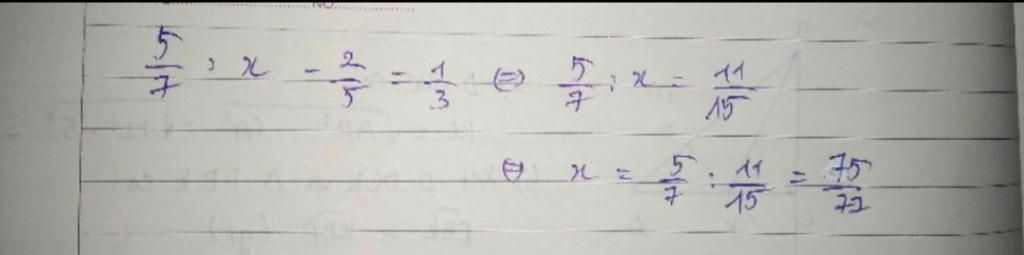 NO.
5/7 : x - 2/5 = 1/3 ⇔ 5/7 : x = 11/15
⇔ x = 5/7 : 11/15 = 75/77